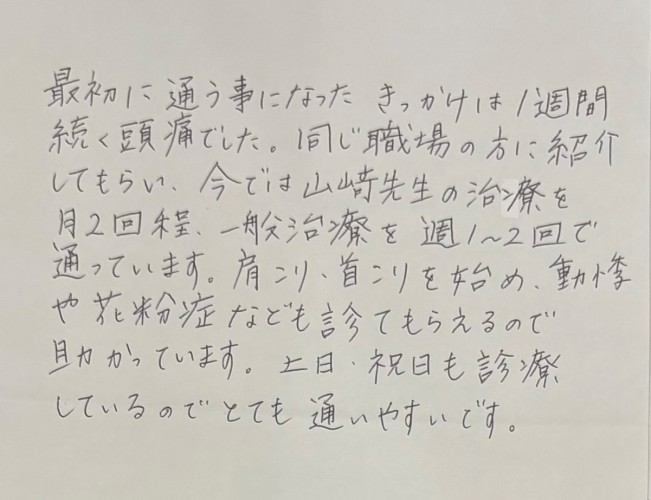 最初に通う事になったきっかけは1週間
続く頭痛でした。同じ職場の方に紹介
してもらい、今では山﨑先生の治療を
月2回程、一般治療を週1~2回で
通っています。肩こり、首こりを始め、動悸
や花粉症なども診てもらえるので
助かっています。土日・祝日も診療
しているのでとても通いやすいです。